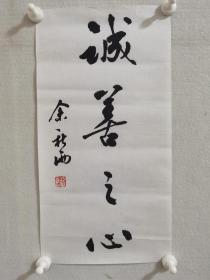 誠善之心
余秋雨